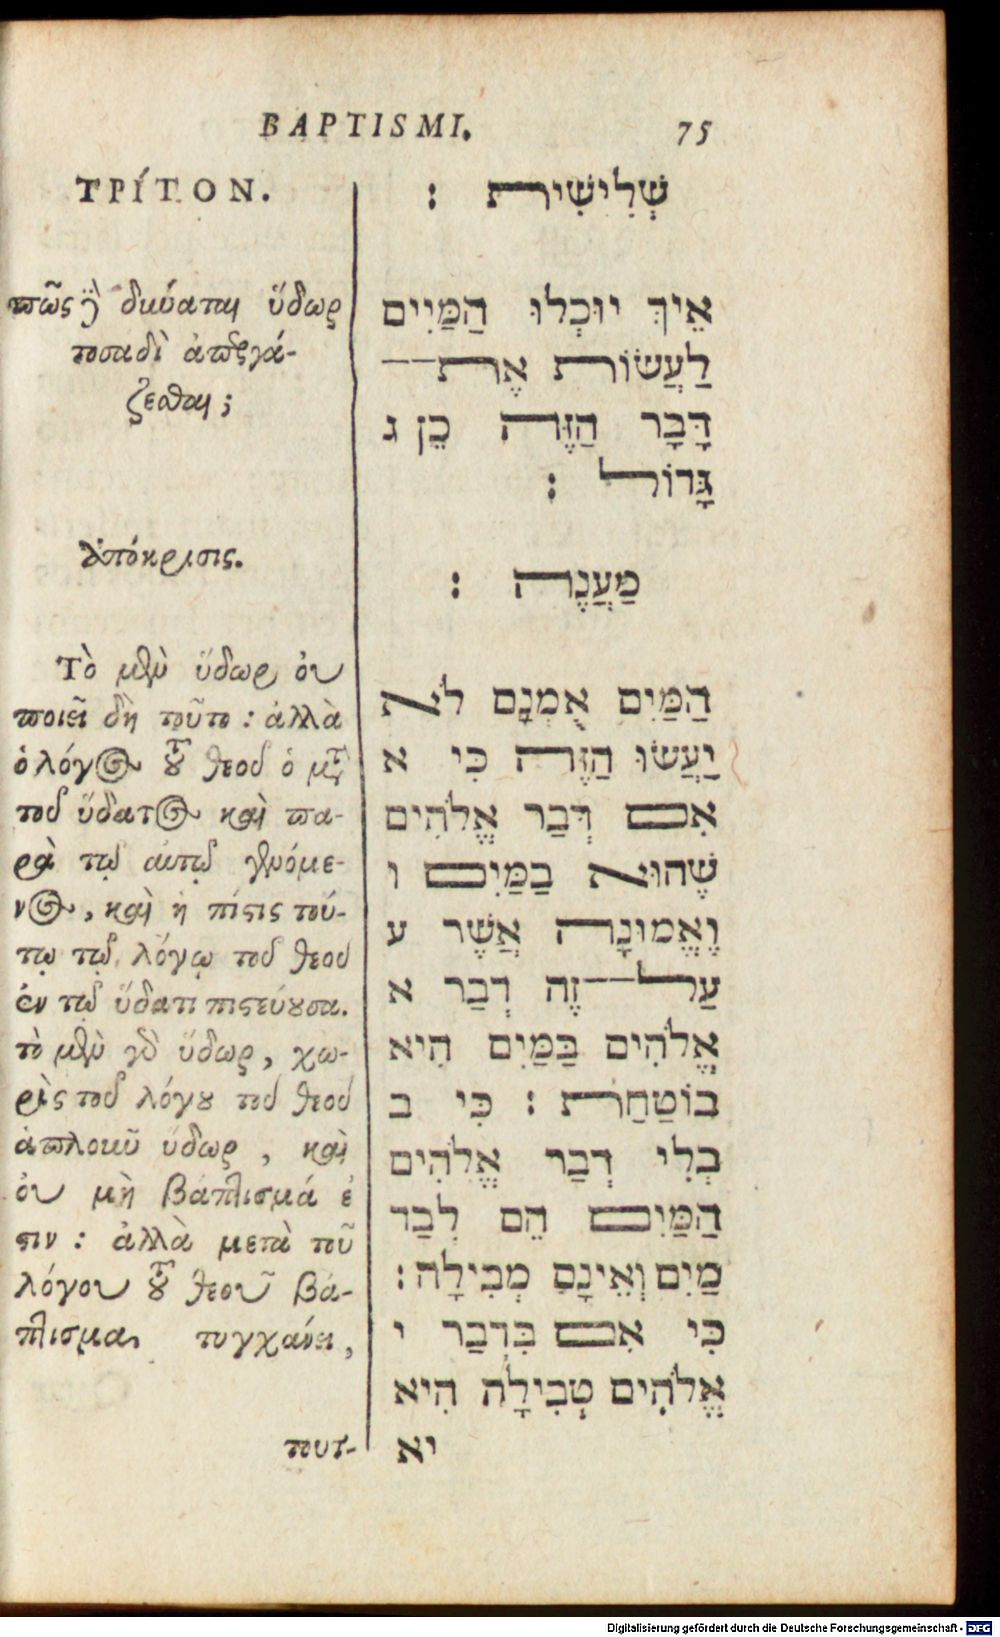 BAPTISMI. 75
ΤΡΊΤΟΝ.
πῶς ἢ δύναται ὕδωρ
τοσαδὶ ἀπεργά-
ζεσθαι;
Ἀπόκρισις.
Τὸ μὲν ὕδωρ οὐ
ποιεῖ δὴ τοῦτο: ἀλλὰ
ὁ λόγος τοῦ θεοῦ ὁ μετὰ
τοῦ ὕδατος καὶ πα-
ρὰ τῷ αὐτῷ γενόμε-
νος, καὶ ἡ πίστις τού-
τῳ τῷ λόγῳ τοῦ θεοῦ
ἐν τῷ ὕδατι πιστεύουσα.
τὸ μὲν γὰρ ὕδωρ, χω-
ρὶς τοῦ λόγου τοῦ θεοῦ
ἁπλοκοῦ ὕδωρ, καὶ
οὐ μὴ βάπτισμά ἐ
στιν: ἀλλὰ μετὰ τοῦ
λόγου τοῦ θεοῦ βά-
πτισμα τυγχάνει,
τουτ-
שְׁלִישִׁית :
אֵיךְ יוּכְלוּ הַמַּיִים
לַעֲשׂוֹת אֶת
דָּבָר הַזֶּה כֵן ג
גָּדוֹל :
מַעֲנֶה :
הַמַּיִם אֻמְנָם לֹא
יַעֲשׂוּ הַזֶּה כִּי א
אִם דְּבַר אֱלֹהִים
שֶׁהוּא בַמַּיִם ו
וֶאֱמוּנָה אֲשֶׁר ע
עַל זֶה דְבַר א
אֱלֹהִים בַּמַּיִם הִיא
בוֹטַחַת : כִּי ב
בְלִי דְבַר אֱלֹהִים
הַמַּיִם הֵם לְבַד
מַיִם וְאֵינָם מְבִילָה :
כִּי אִם בִּדְבַר י
אֱלֹהִים טְבִילָה הִיא
יא
Digitalisierung gefördert durch die Deutsche Forschungsgemeinschaft - DFG